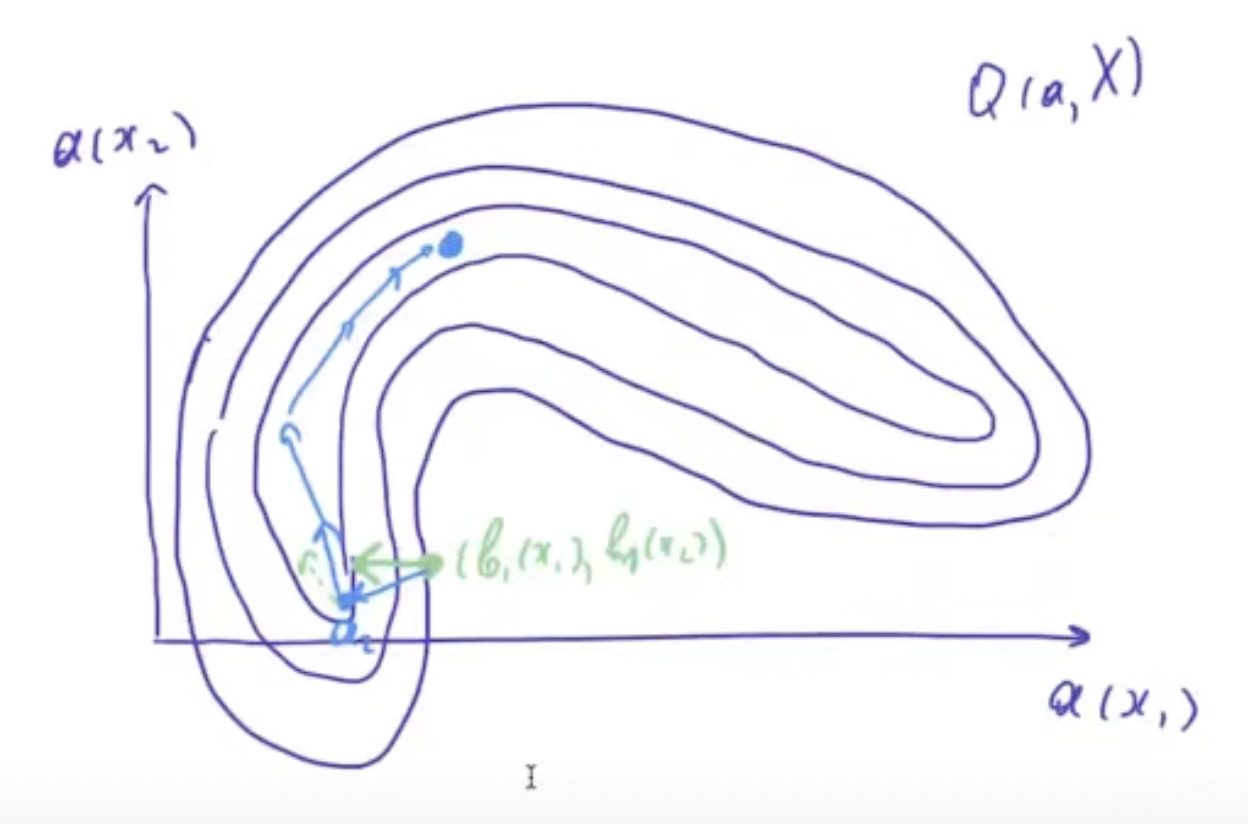 Q(a, X)
a(x₂)
(b₁(x₁), b₁(x₂))
a₂
a(x₁)